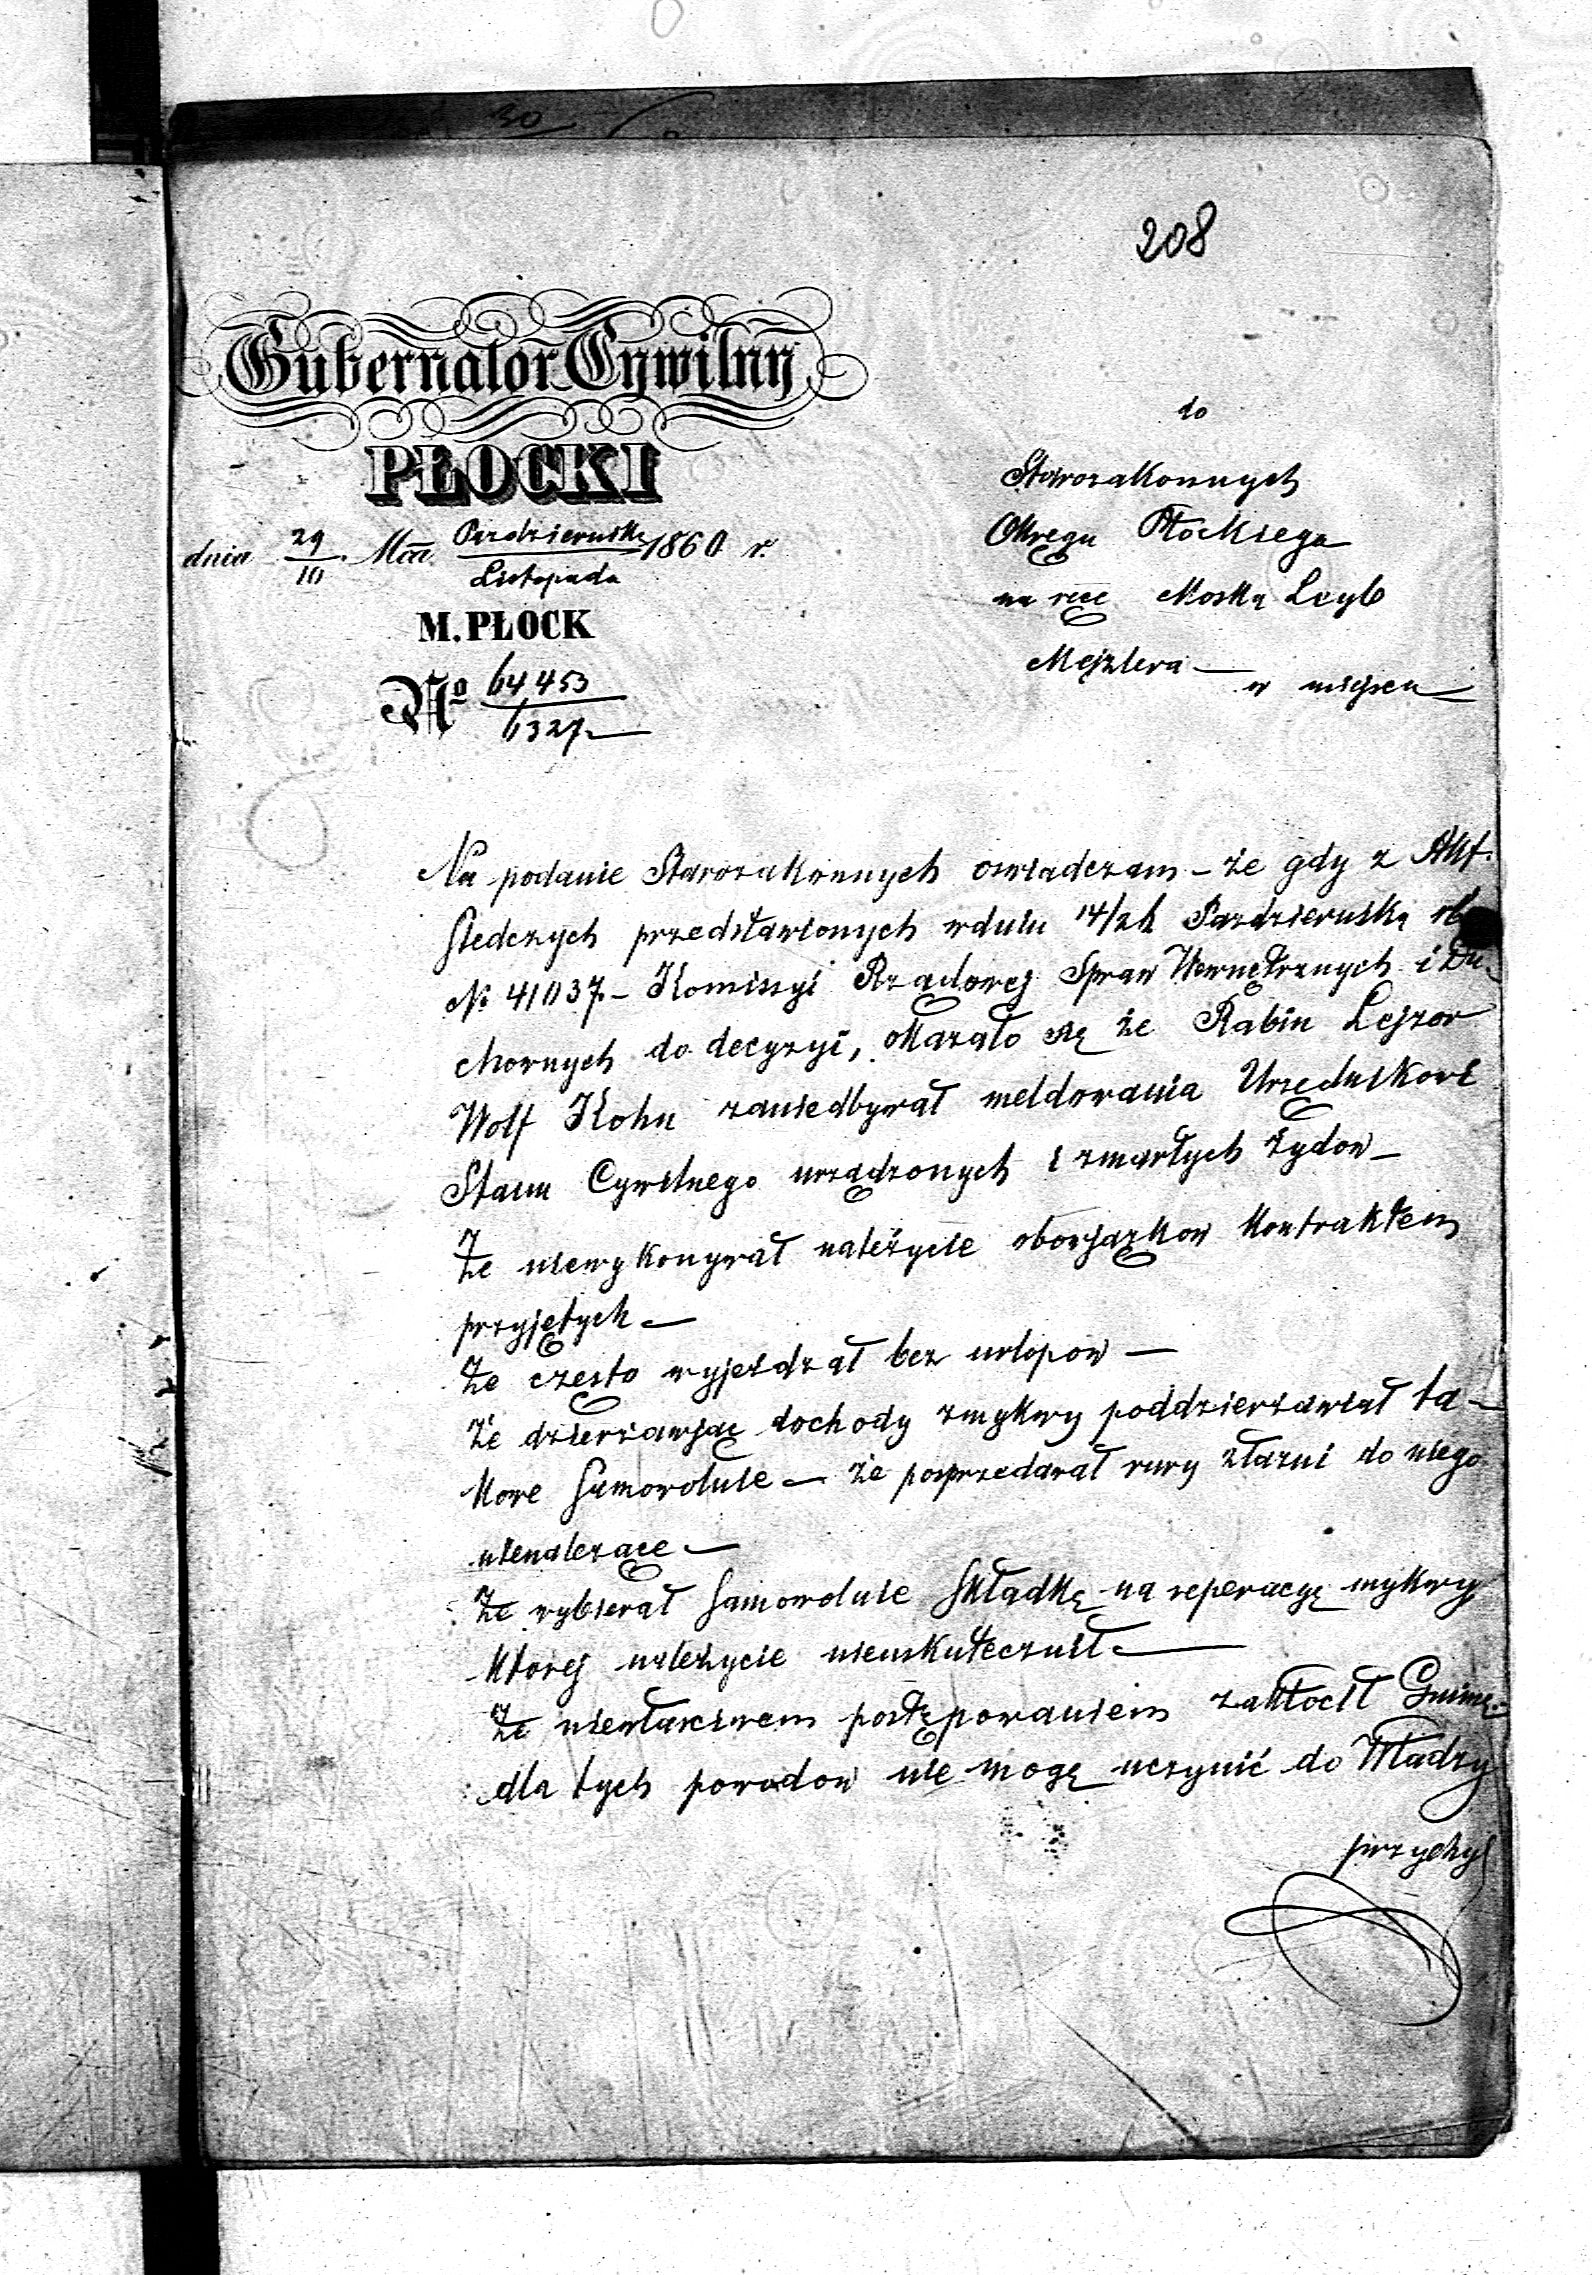 30
208
Gubernator Cywilny
PŁOCKI
dnia 29/10 Mca Pazdziernika/Listopada 1860 r.
M. PŁOCK
No 64453/6327
do
Starozakonnych
Okręgu Płockiego
na ręce Moska Leyb
Mejzlera
w miejscu
Na podanie Starozakonnych oswiadczam – że gdy z Akt.
sledczych przedstawionych wdniu 14/26 Pazdziernika rb
No 41037 – Komissyi Rządowej Spraw Wewnętrznych i Du
chownych do decyzyi, okazało się że Rabin Lejzor
Wolf Kohn zaniedbywał meldowania Urzędnikowi
Stanu Cywilnego urządzonych i zmarłych żydow –
Że niewykonywał należycie obowjązkow kontraktem
przyjętych –
Że często wyjeżdzał bez urlopow –
Że dzierzawjąc dochody zmykwy poddzierżawiał ta –
kowe samowolnie – że posprzedawał rury złazni do niego
nienależące –
Że wybierał samowolnie składkę na reperacyę mykwy
ktorej należycie nieuskutecznił –
Że niewłasciwem postępowaniem zakłocił Gminę –
dla tych powodow nie mogę uczynić do Władzy
przychyl